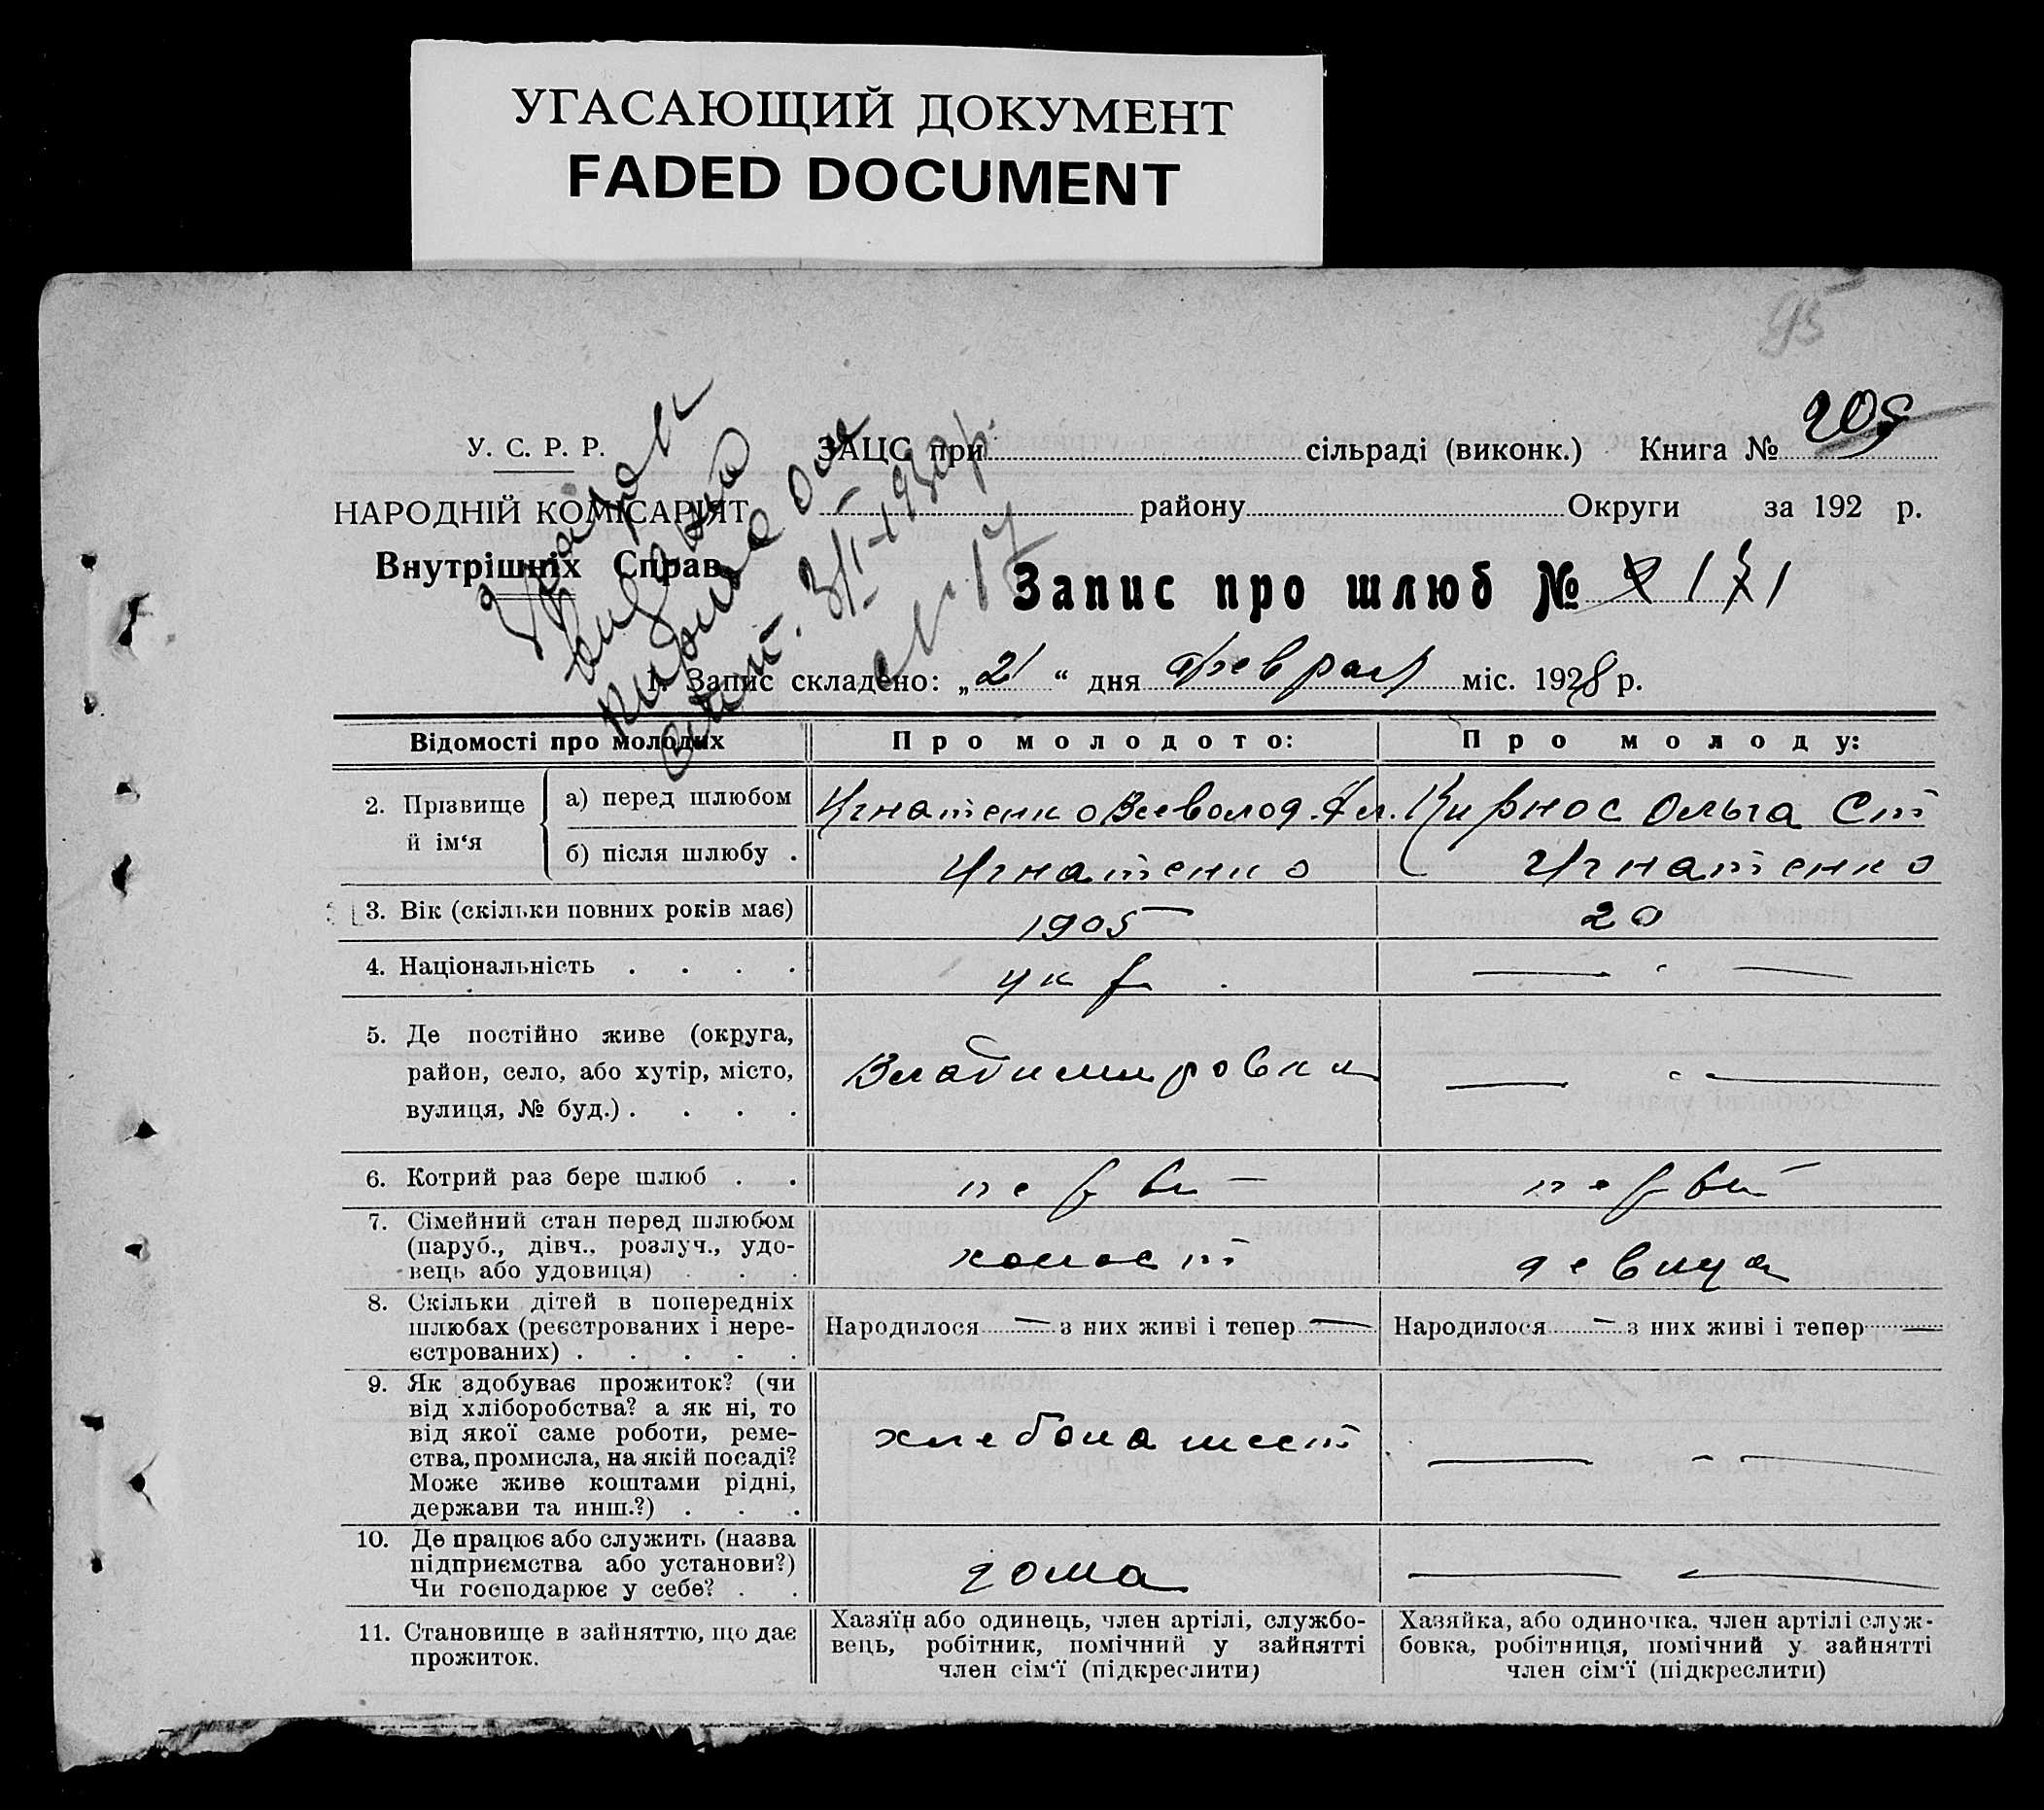 УГАСАЮЩИЙ ДОКУМЕНТ
FADED DOCUMENT
95
У. С. Р. Р.
НАРОДНІЙ КОМІСАРІЯТ
Внутрішніх Справ
ЗАЦС при сільраді (виконк.) Книга №
району Округи за 192 р.
3/I-1930р.
№ 17
Запис про шлюб № 171
1. Запис складено: „21“ дня феврал міс. 1928 р.
Відомості про молодих
Про молодого:
Про молоду:
2. Прізвище й ім‘я
а) перед шлюбом
Игнатенко Всеволод
Кирнос Ольга Ст
б) після шлюбу .
Игнатенко
Игнатенко
3. Вік (скільки повних років має)
1905
20
4. Національність . . . .
укр
— " —
5. Де постійно живе (округа,
район, село, або хутір, місто,
вулиця, № буд.) . . . .
Владимировка
— " —
6. Котрий раз бере шлюб . .
перви
перви
7. Сімейний стан перед шлюбом
(паруб., дівч., розлуч., удо-
вець або удовиця) . . .
холост
девица
8. Скільки дітей в попередніх
шлюбах (реєстрованих і нере-
єстрованих) . . . . .
Народилося — з них живі і тепер —
Народилося — з них живі і тепер —
9. Як здобуває прожиток? (чи
від хліборобства? а як ні, то
від якої саме роботи, реме-
ства, промисла, на якій посаді?
Може живе коштами рідні,
держави та инш.?) . . .
хлебопашест
— " —
10. Де працює або служить (назва
підприємства або установи?)
Чи господарює у себе? . .
дома
— " —
11. Становище в зайняттю, що дає
прожиток.
Хазяїн або одинець, член артілі, службо-
вець, робітник, помічний у зайнятті
член сім‘ї (підкреслити)
Хазяйка, або одиночка, член артілі служ-
бовка, робітниця, помічний у зайнятті
член сім‘ї (підкреслити)